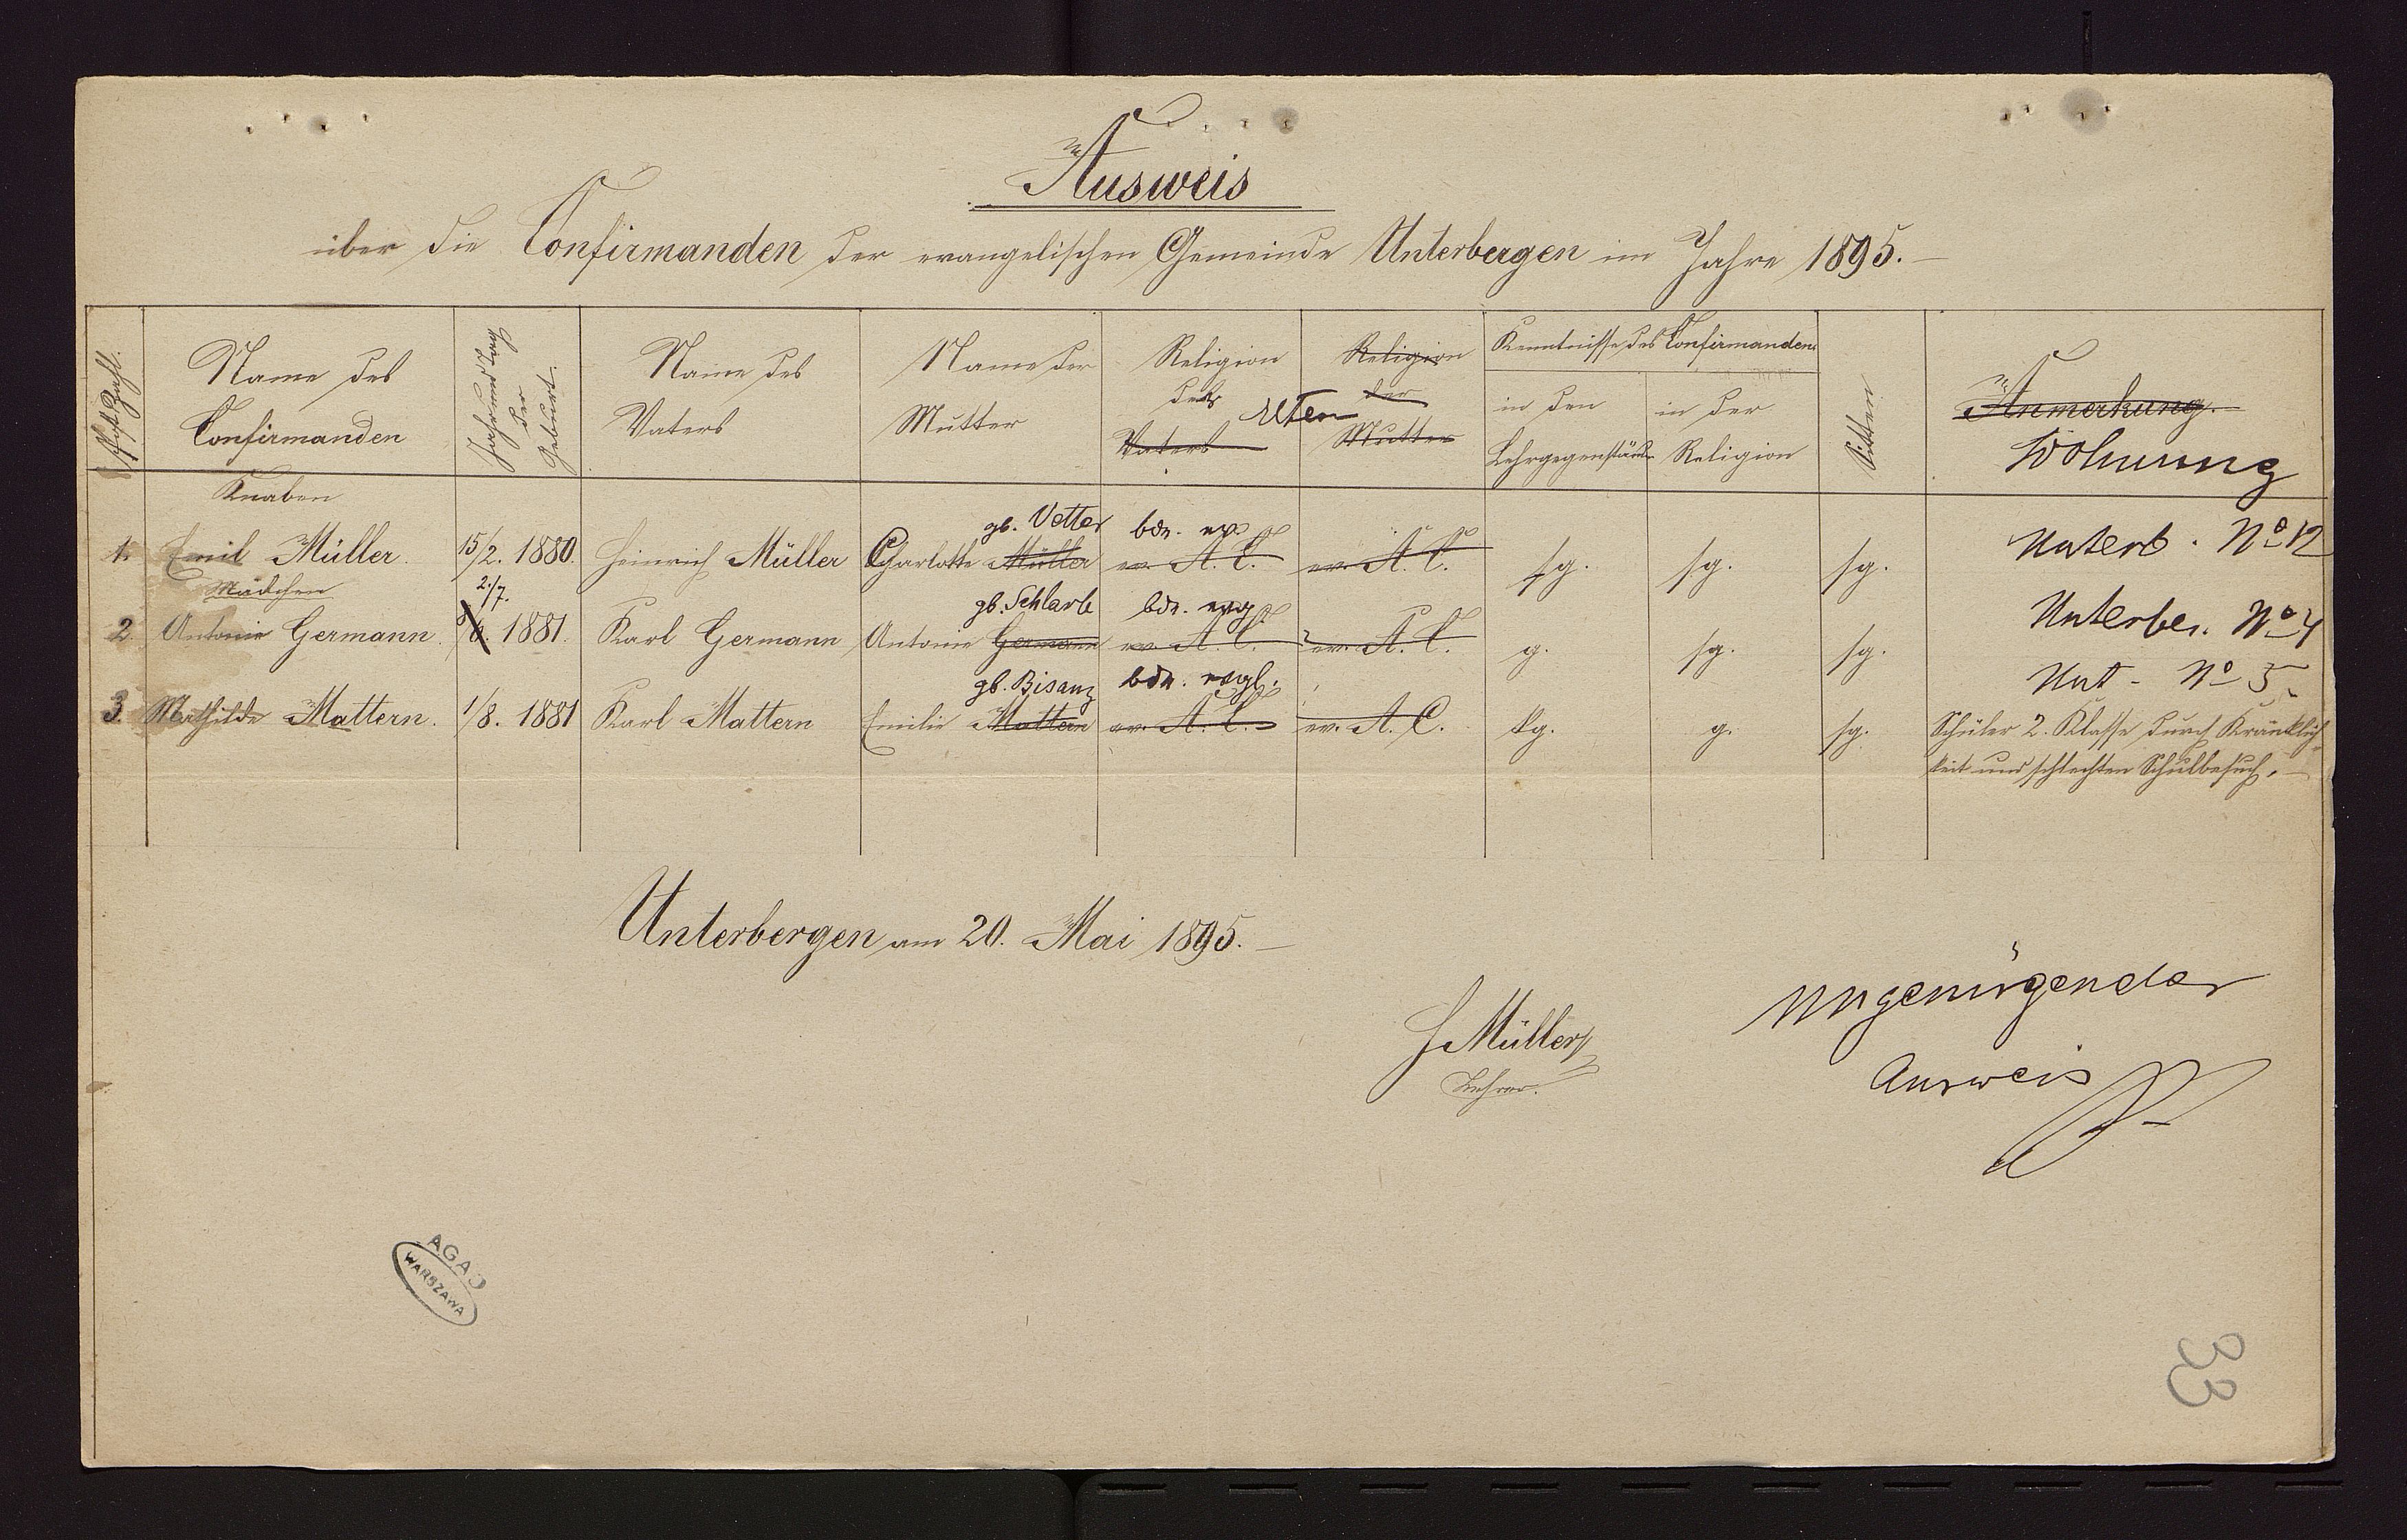 Ausweis
über die Confirmanden der evangelischen Gemeinde Unterbergen im Jahre 1895.—
Post Zahl. Name des Confirmanden Jahr und Tag der Geburt. Name des Vaters Name der Mutter Religion des Vaters Eltern Religion der Mutter Kenntnisse des Confirmanden in den Lehrgegenständen in der Religion Sitten Anmerkung. Wohnung
Knaben
gb. Vetter bde. ev.
1. Emil Müller. 15/2. 1880. Heinrich Müller Charlotte Müller ev. A. C. ev. A. C. sg. sg. sg. Unterb. No 12
Mädchen 2./7. gb. Schlarb bde. evg.
2. Antonie Germann. 1881. Karl Germann Antonie Germann ev. A. C. ev. A. C. g. sg. sg. Unterbe. No 4
gb. Bisanz bde. evgl. Unt - No 5
3. Mathilde Mattern. 1/8. 1881 Karl Mattern Emilie Mattern ev. A. C. ev. A. C. g. sg. Schüler 2. Klasse durch Kränklich-
keit und schlechten Schulbesuch.—
Unterbergen am 20. Mai 1895.—
H Müller
Lehrer.
Ungenügender
Ausweis
AGAD
WARSZAWA
33